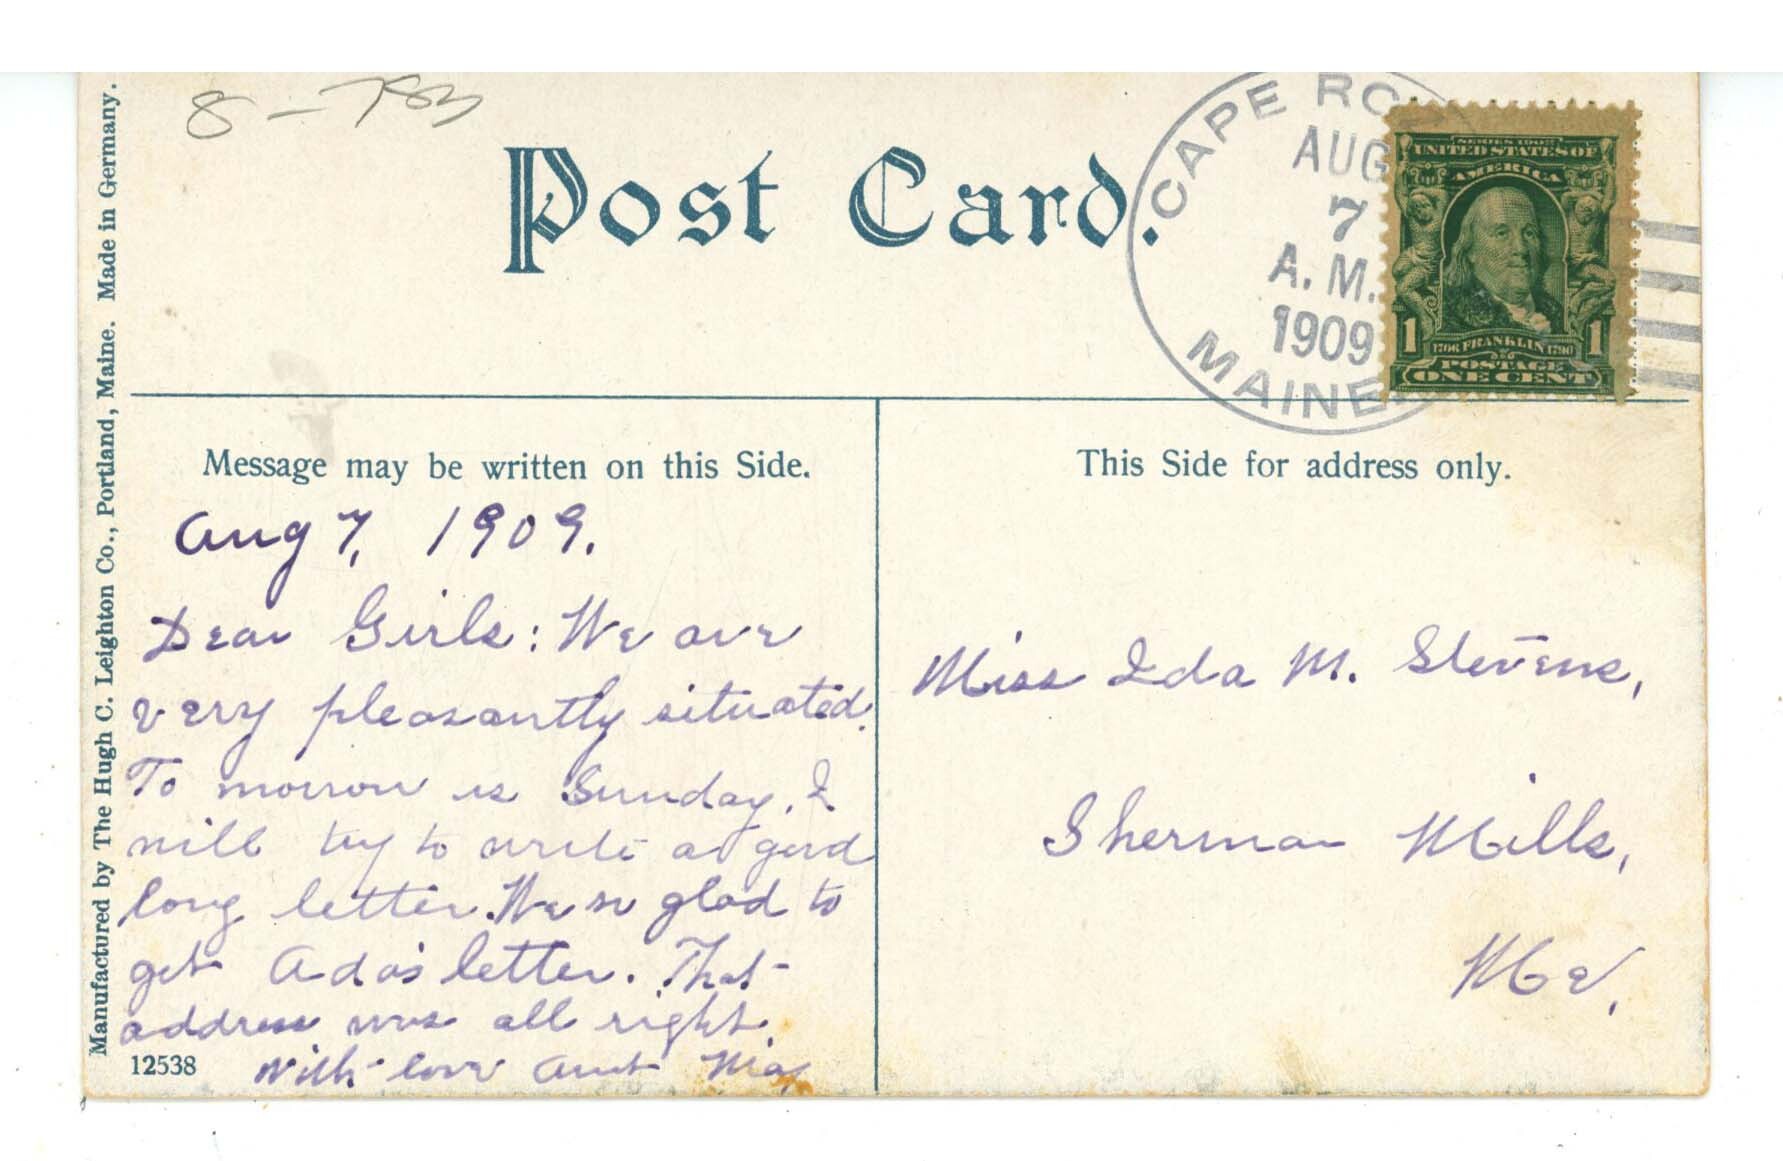 8-783
Post Card.
CAPE RO
AUG
7
A. M.
1909
MAINE
SERIES 1902
UNITED STATES OF
AMERICA
1 1
1706 FRANKLIN 1790
POSTAGE
ONE CENT
Manufactured by The Hugh C. Leighton Co., Portland, Maine. Made in Germany.
Message may be written on this Side.
Aug 7, 1909.
Dear Girls: We are
very pleasantly situated.
To morrow is Sunday. I
will try to write a good
long letter. We so glad to
get Ada's letter. That
address was all right.
With love Aunt
12538
This Side for address only.
Miss Ida M. Stevens,
Sherman Mills,
Me.